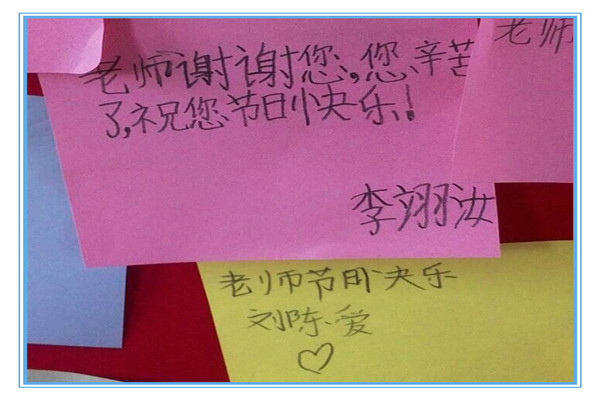 老师谢谢您,您辛苦
了,祝您节日快乐!
李翊汝
老师
老师节日快乐
刘陈爱